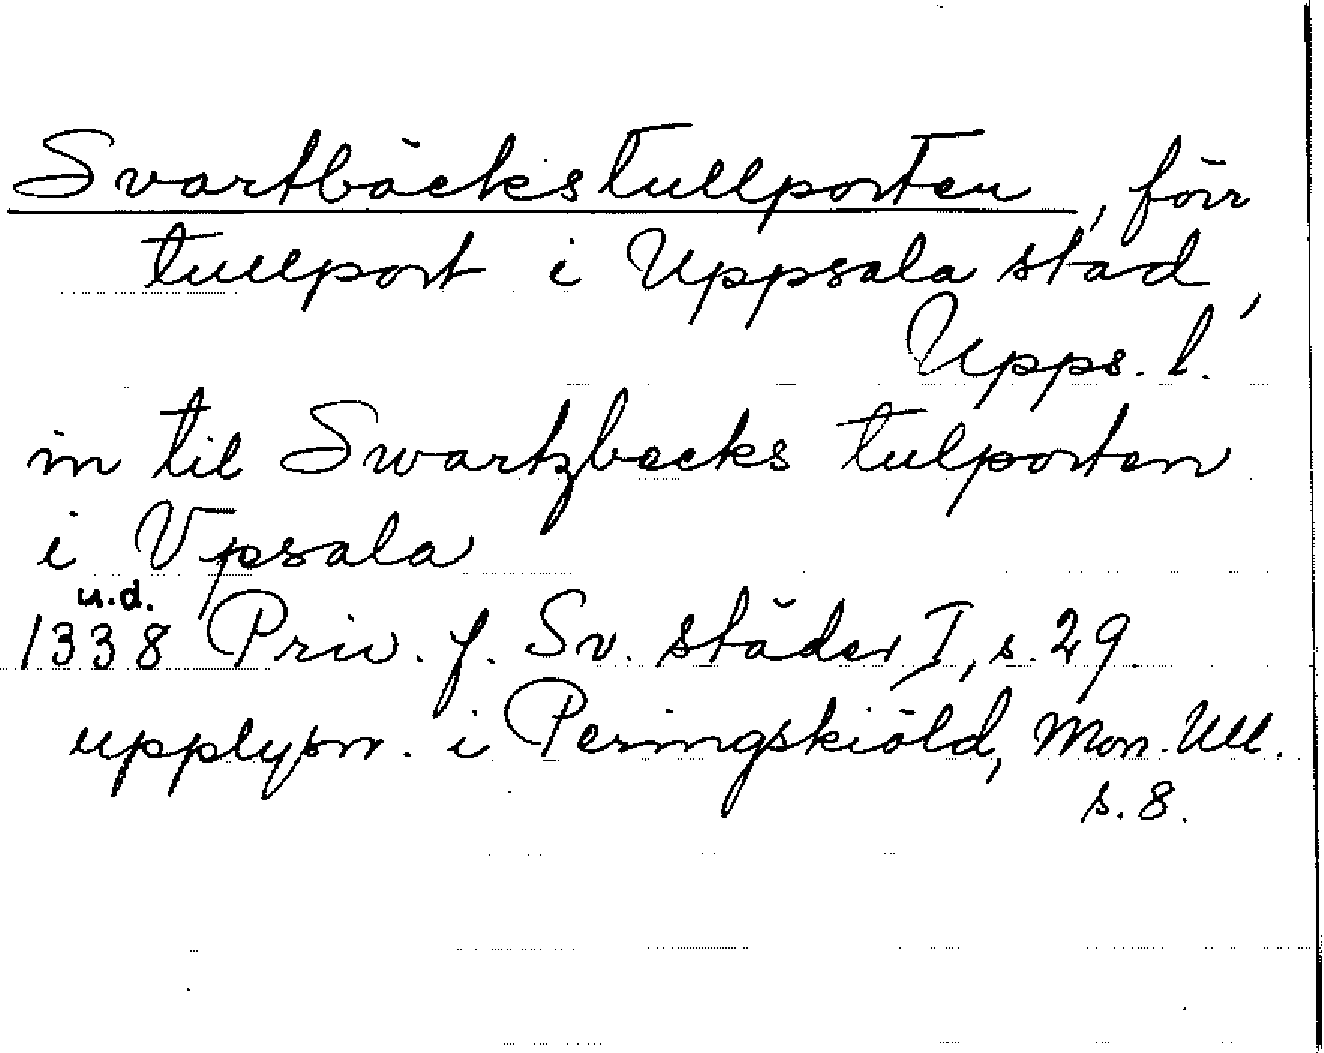 Svartbäckstullporten, förr
tullport i Uppsala stad,
Upps. l.
in til Swartzbecks tulporten
i Vpsala
u.d.
1338 Priv. f. Sv. städer I, s. 29
upplysn. i Peringskiöld, Mon. Ull.
s. 8.